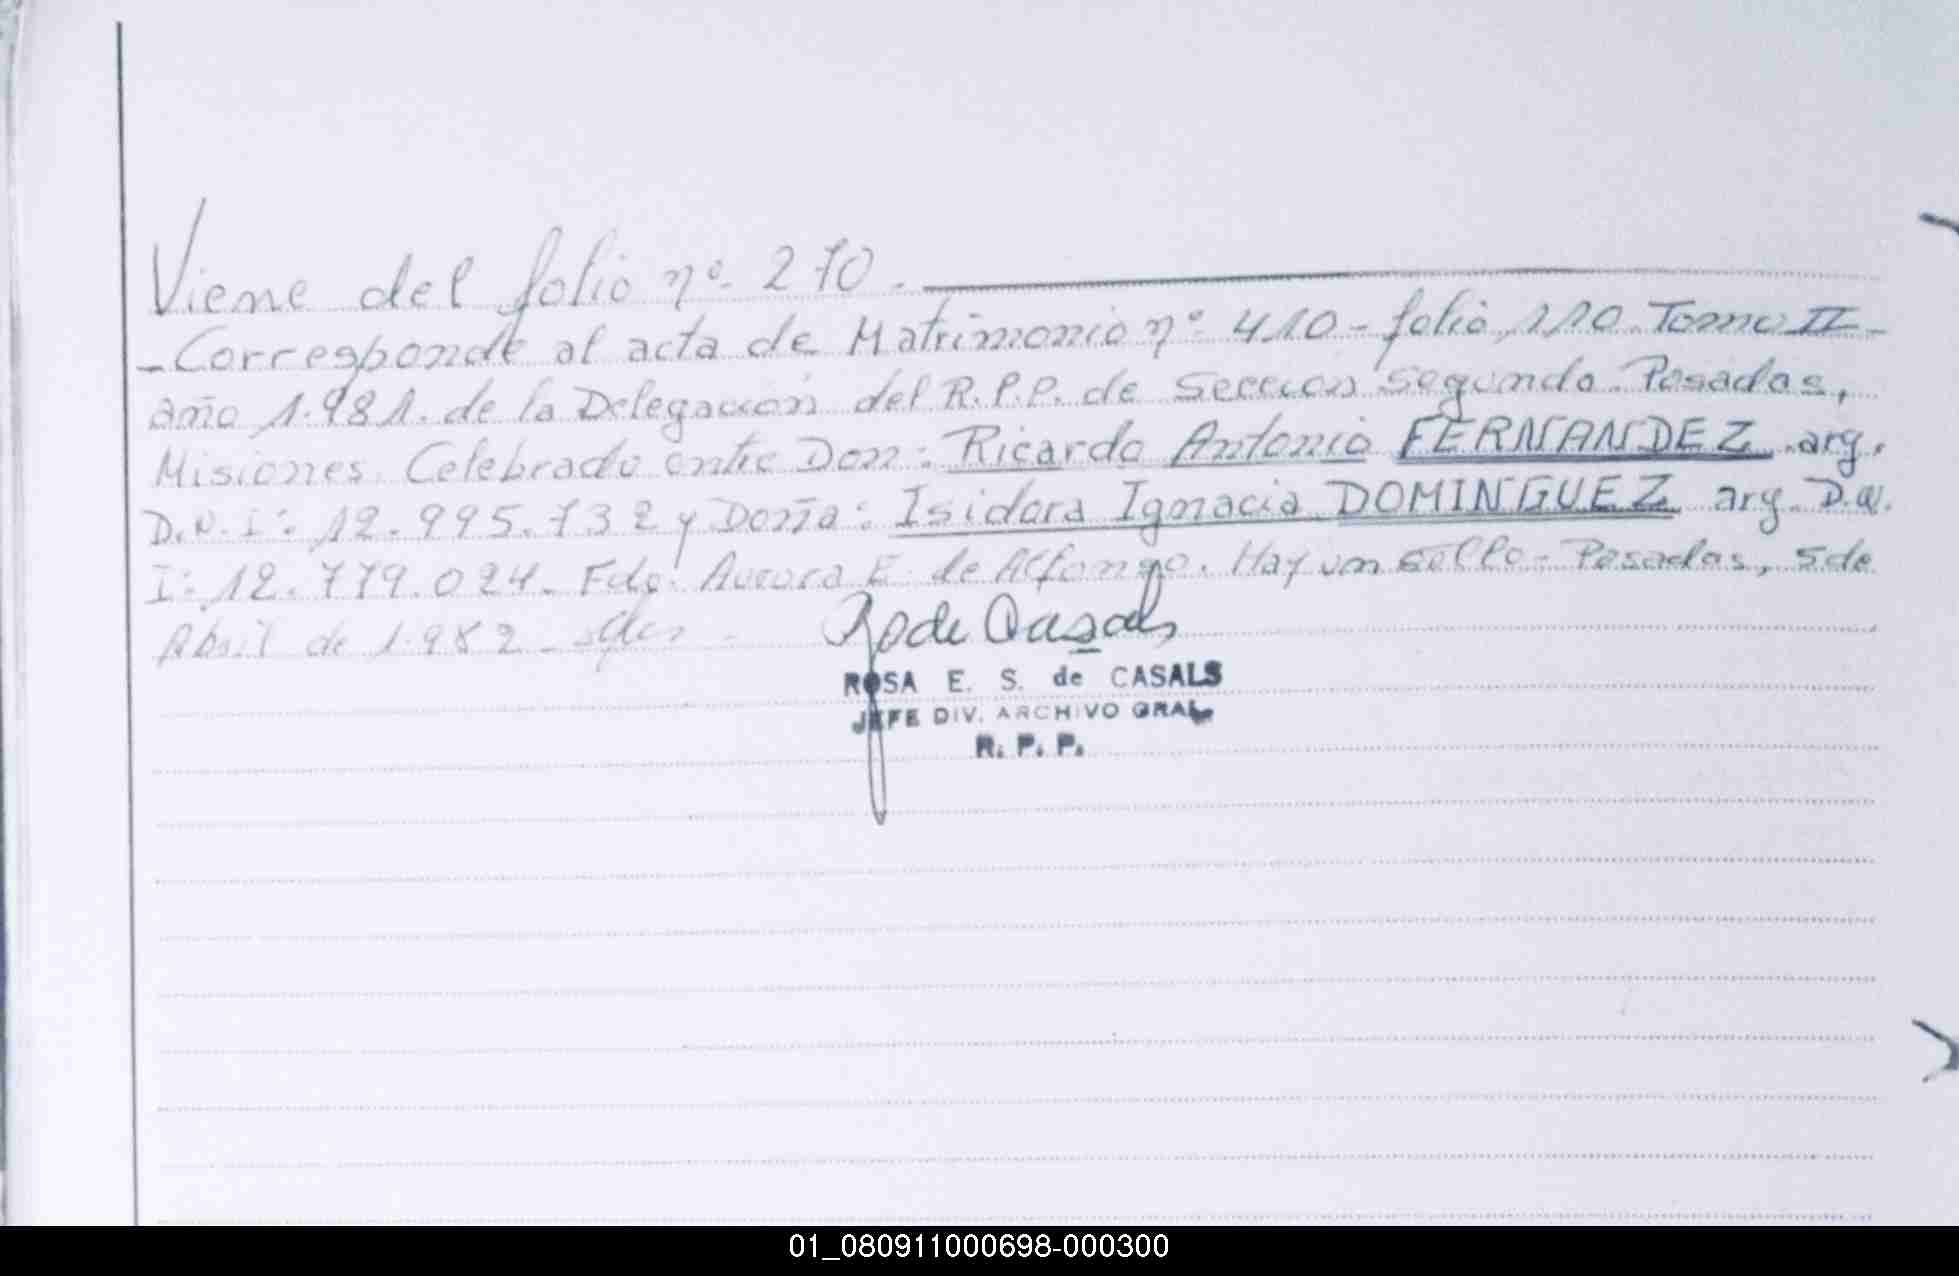 Viene del folio nº. 270.
-Corresponde al acta de Matrimonio nº. 410 - folio 110. Tomo II -
año 1.981. de la Delegación del R.P.P. de Sección Segunda. Posadas,
Misiones. Celebrado entre Don: Ricardo Antonio FERNANDEZ. arg.
D.N.I: 12.995.732 y Doña: Isidora Ignacia DOMINGUEZ arg. D.N.
I: 12.779.024. Fdo: Aurora E. de Alfonzo. Hay un sello - Posadas, 5 de
Abril de 1.982 -
R de Casals
ROSA E. S. de CASALS
JEFE DIV. ARCHIVO GRAL.
R. P. P.
01_080911000698-000300